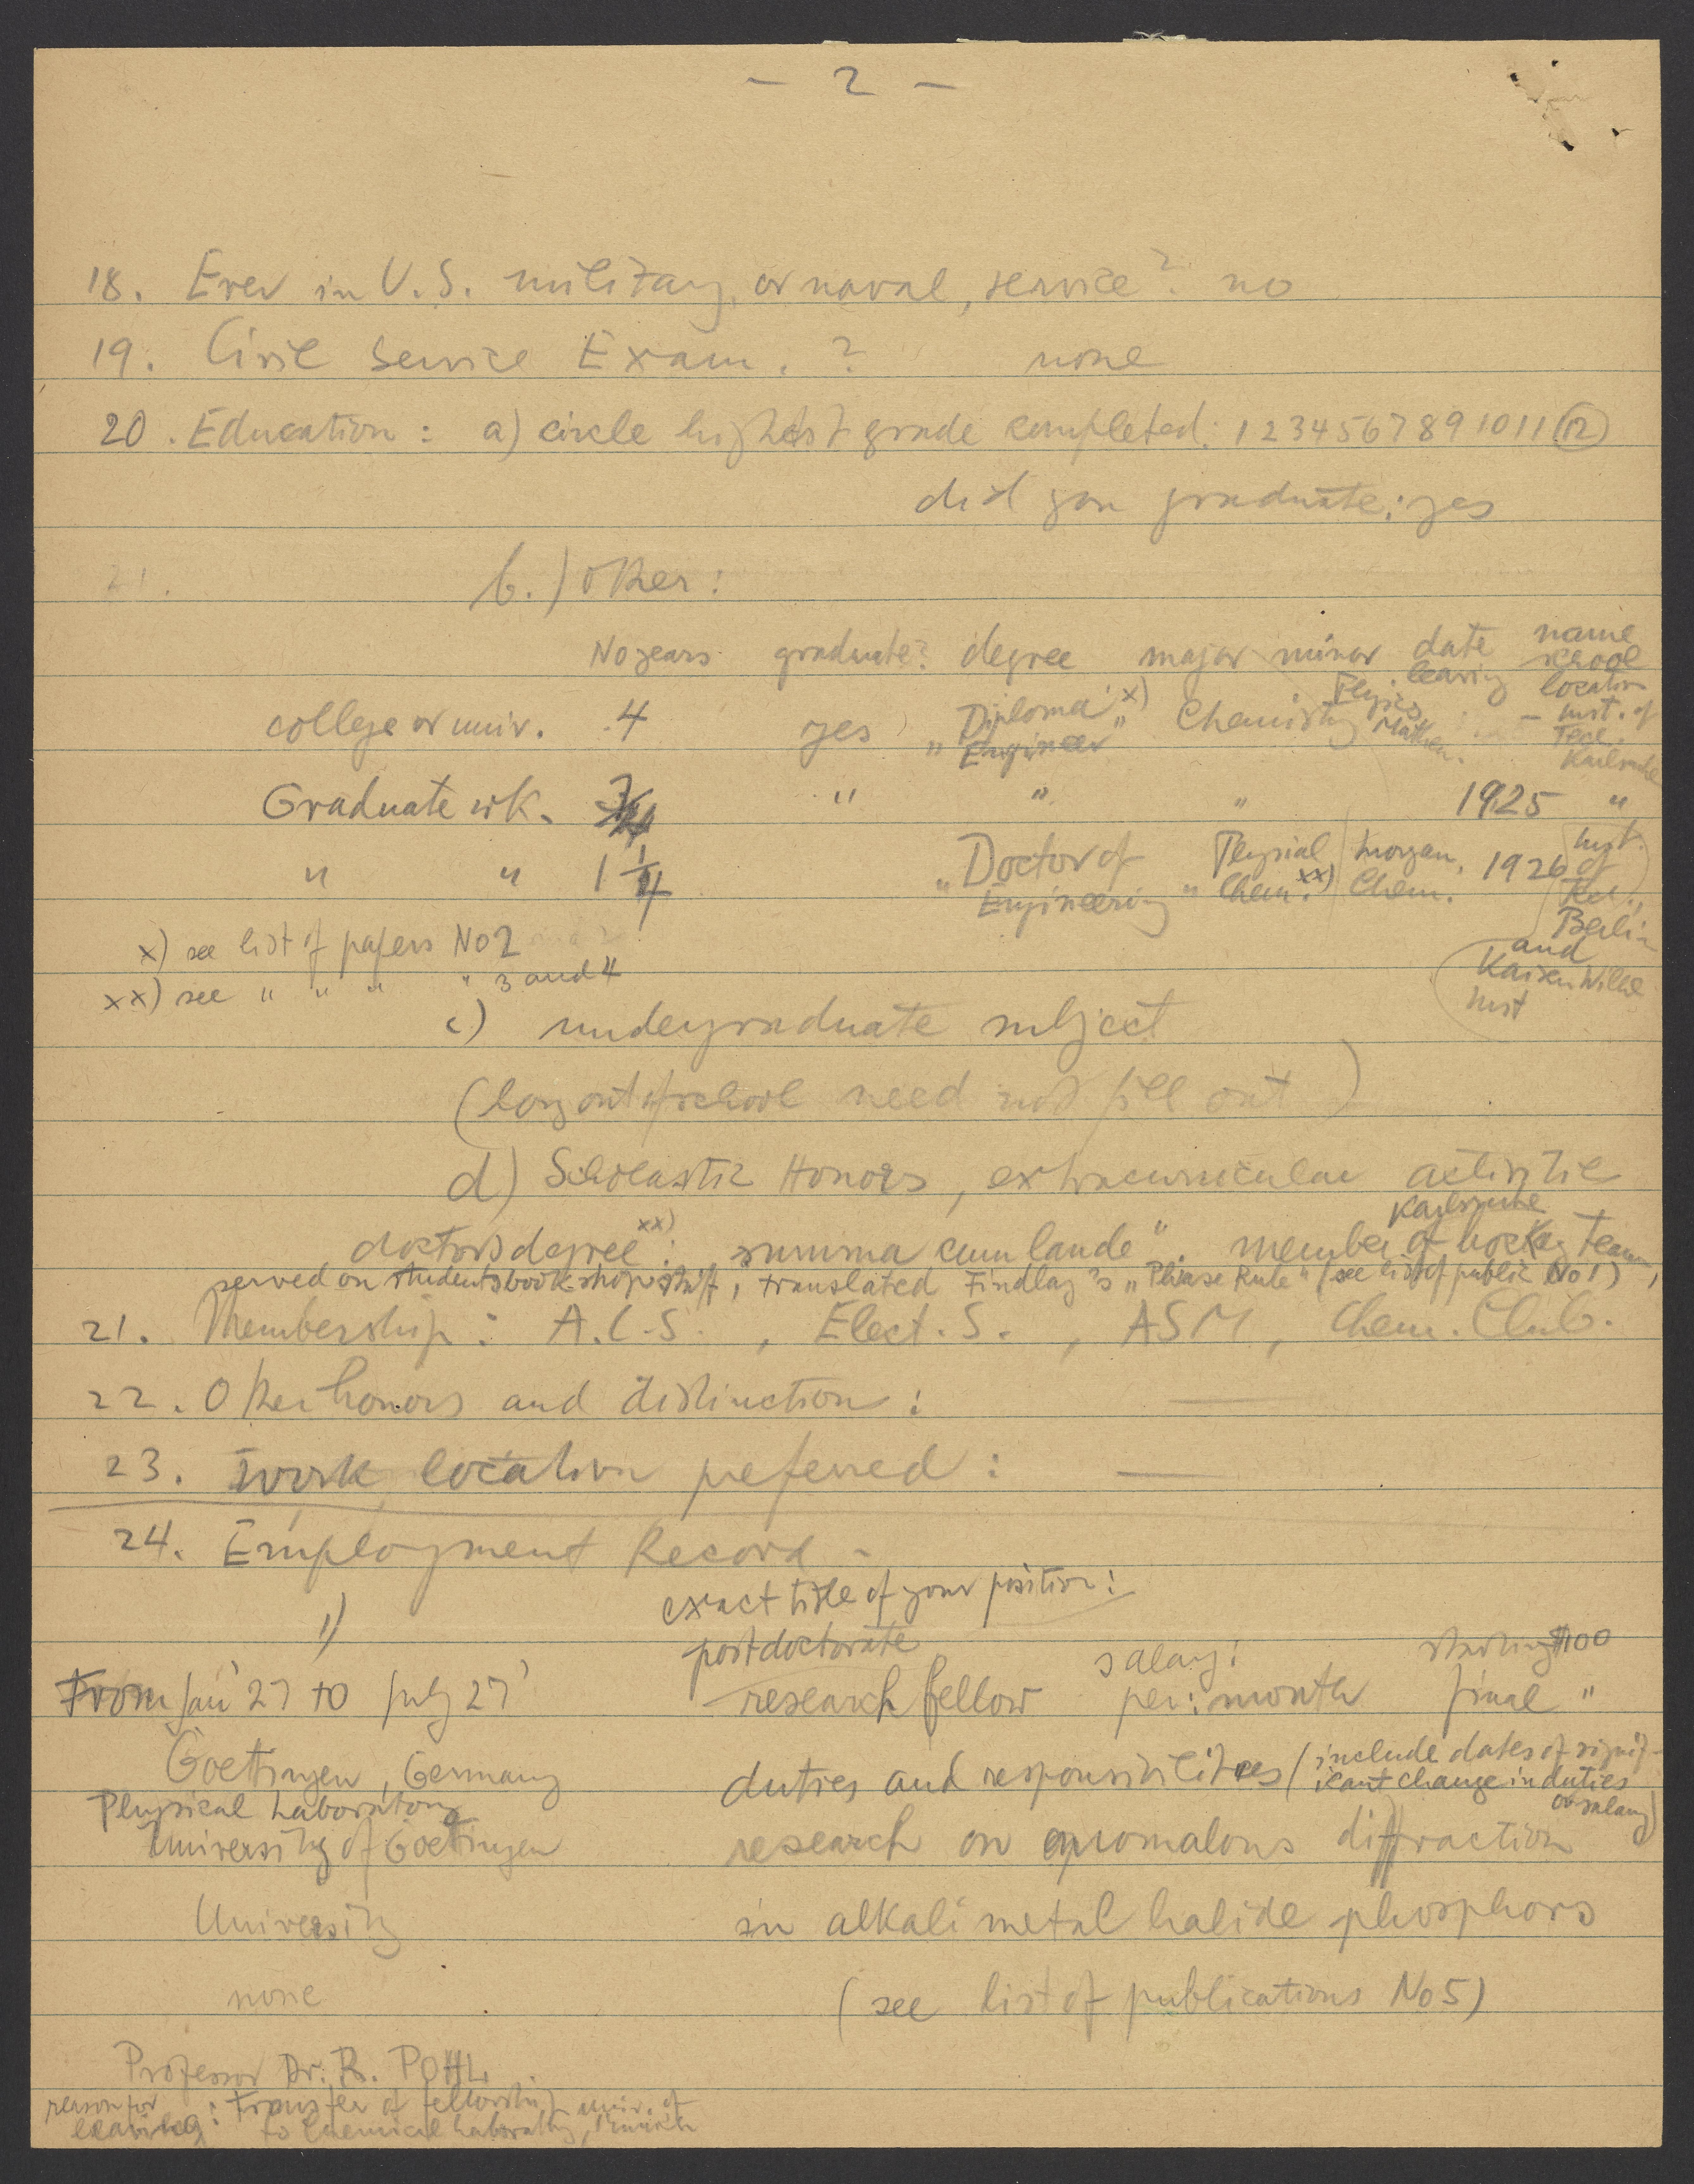 - 2 -
18. Ever in U.S. military, or naval, service? no
19. Civil Service Exam. ? none
20. Education: a) circle highest grade completed: 1 2 3 4 5 6 7 8 9 10 11 12
did you graduate: yes
21. b.) other:
No years graduate? degree major minor date leaving name school location
college or univ. 4 yes "Diploma x) Engineer" Chemistry Physics Mathem. - Inst. of Tech. Karlsruhe
Graduate wk. " " " 1925 "
" " 1 1/4 "Doctor of Engineering" Physical Chem. xx) Inorgan. Chem. 1926 Inst. of Tech., Berlin and Kaiser Wilhe Inst
x) see list of papers No 2
xx) see " " " " 3 and 4
c) undergraduate subject
(long out of school need not fill out)
d) Scholastic Honors, extracurricular activitie
Karlsruhe
doctors degree xx): summa cum laude". member of hockey team,
served on students book-shop staff, translated Findlay's "Phase Rule" (see list of public No 1)
21. Membership: A.C.S., Elect. S., ASM, Chem. Club.
22. Other honors and distinction: —
23. Work location preferred: —
24. Employment Record -
1) exact title of your position:
postdoctorate salary: starting $100
From Jan' 27 to July 27' research fellow per: month final "
Goettingen, Germany duties and responsibilities (include dates of significant change in duties or salary)
Physical Laboratory
University of Goettingen research on anomalous diffraction
University in alkali metal halide phosphors
none (see list of publications No 5)
Professor Dr. R. POHL.
reason for leaving: Transfer of fellowship to Chemical Laboratory, Univ. of Munich